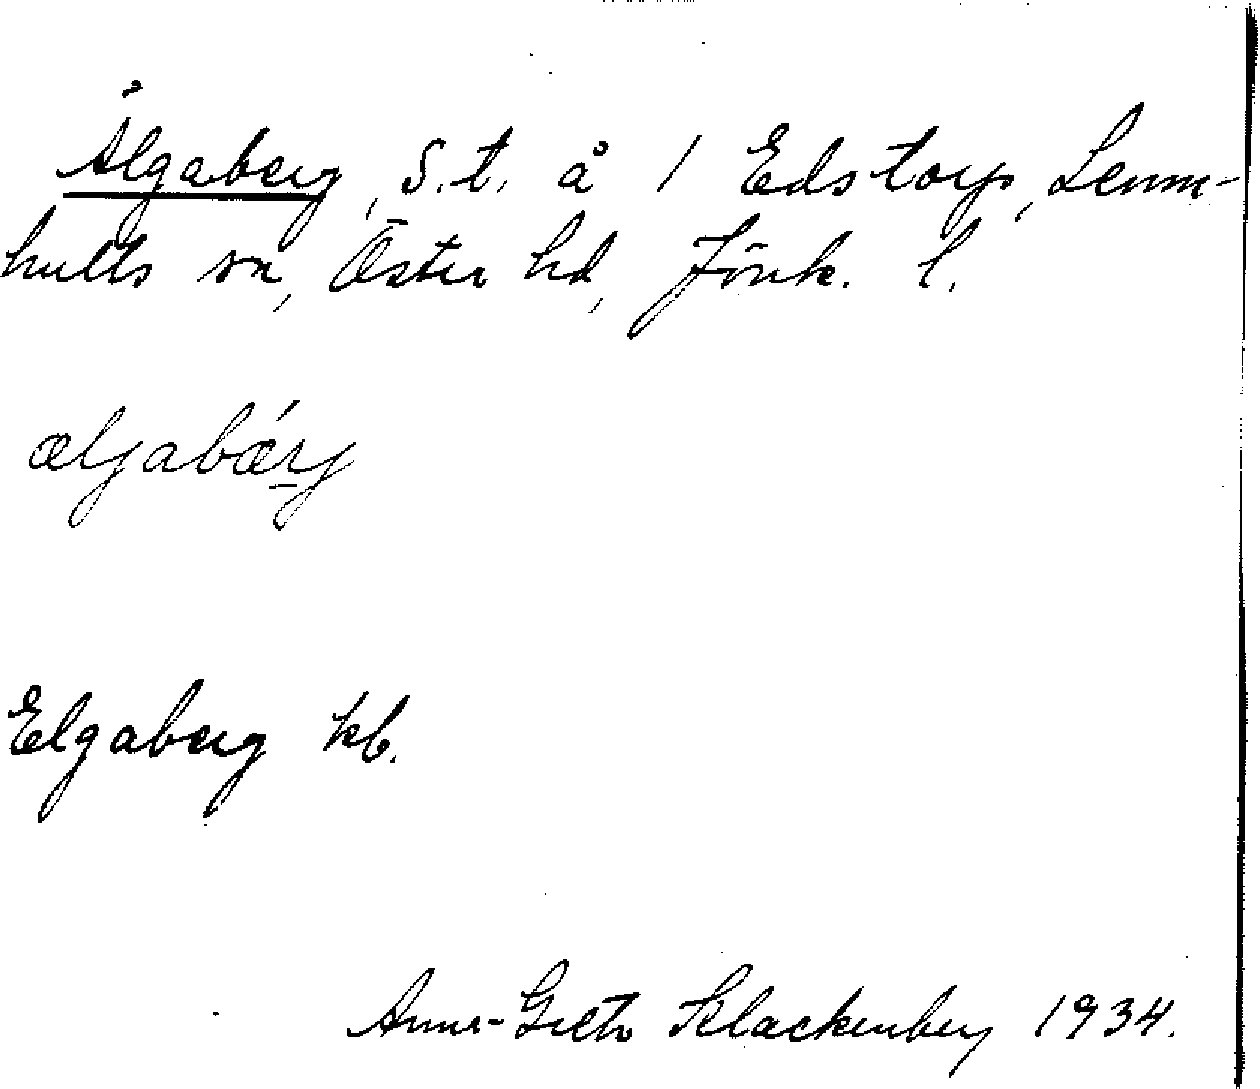 Älgaberg, S.t. å 1 Edstorp, Lemn-
hults sn, Öster hd, Jönk. l.
æljabǽrj
Elgaberg kb.
Anna-Greta Klackenberg 1934.